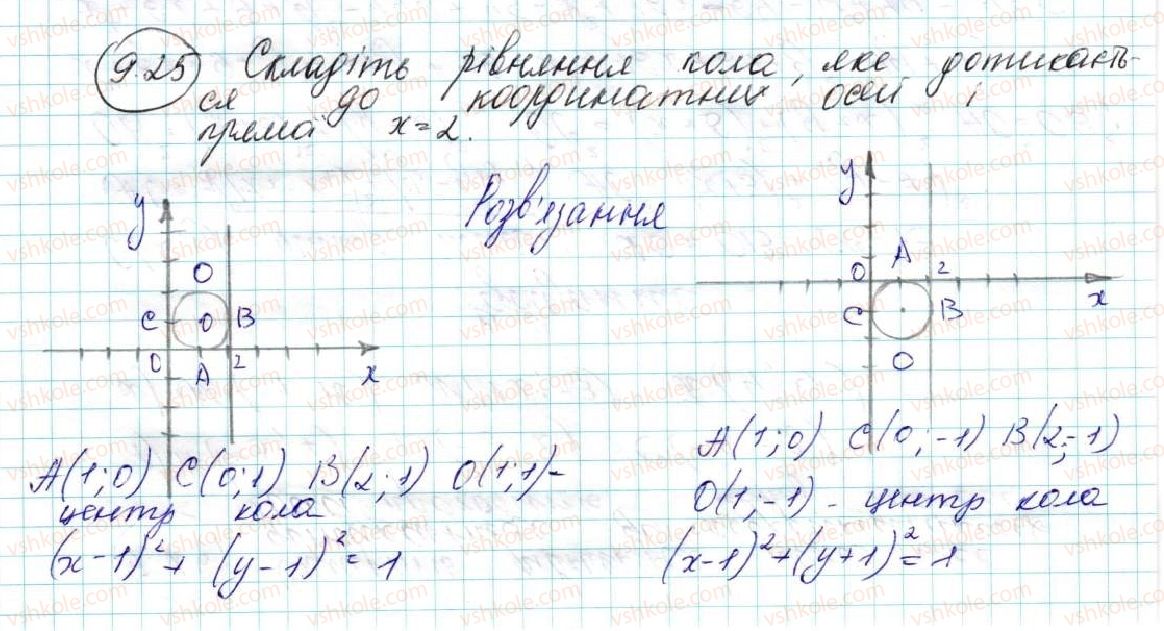 925 Складіть рівняння кола, яке дотикаєть-
ся до координатних осей і
прямої x=2.
Розв'язання
y
O
C O B
O A 2 x
y
O A 2
C B x
O
A(1;0) C(0;1) B(2;1) O(1;1)-
центр кола
(x-1)²+(y-1)²=1
A(1;0) C(0;-1) B(2;-1)
O(1;-1) - центр кола
(x-1)²+(y+1)²=1
vshkole.com